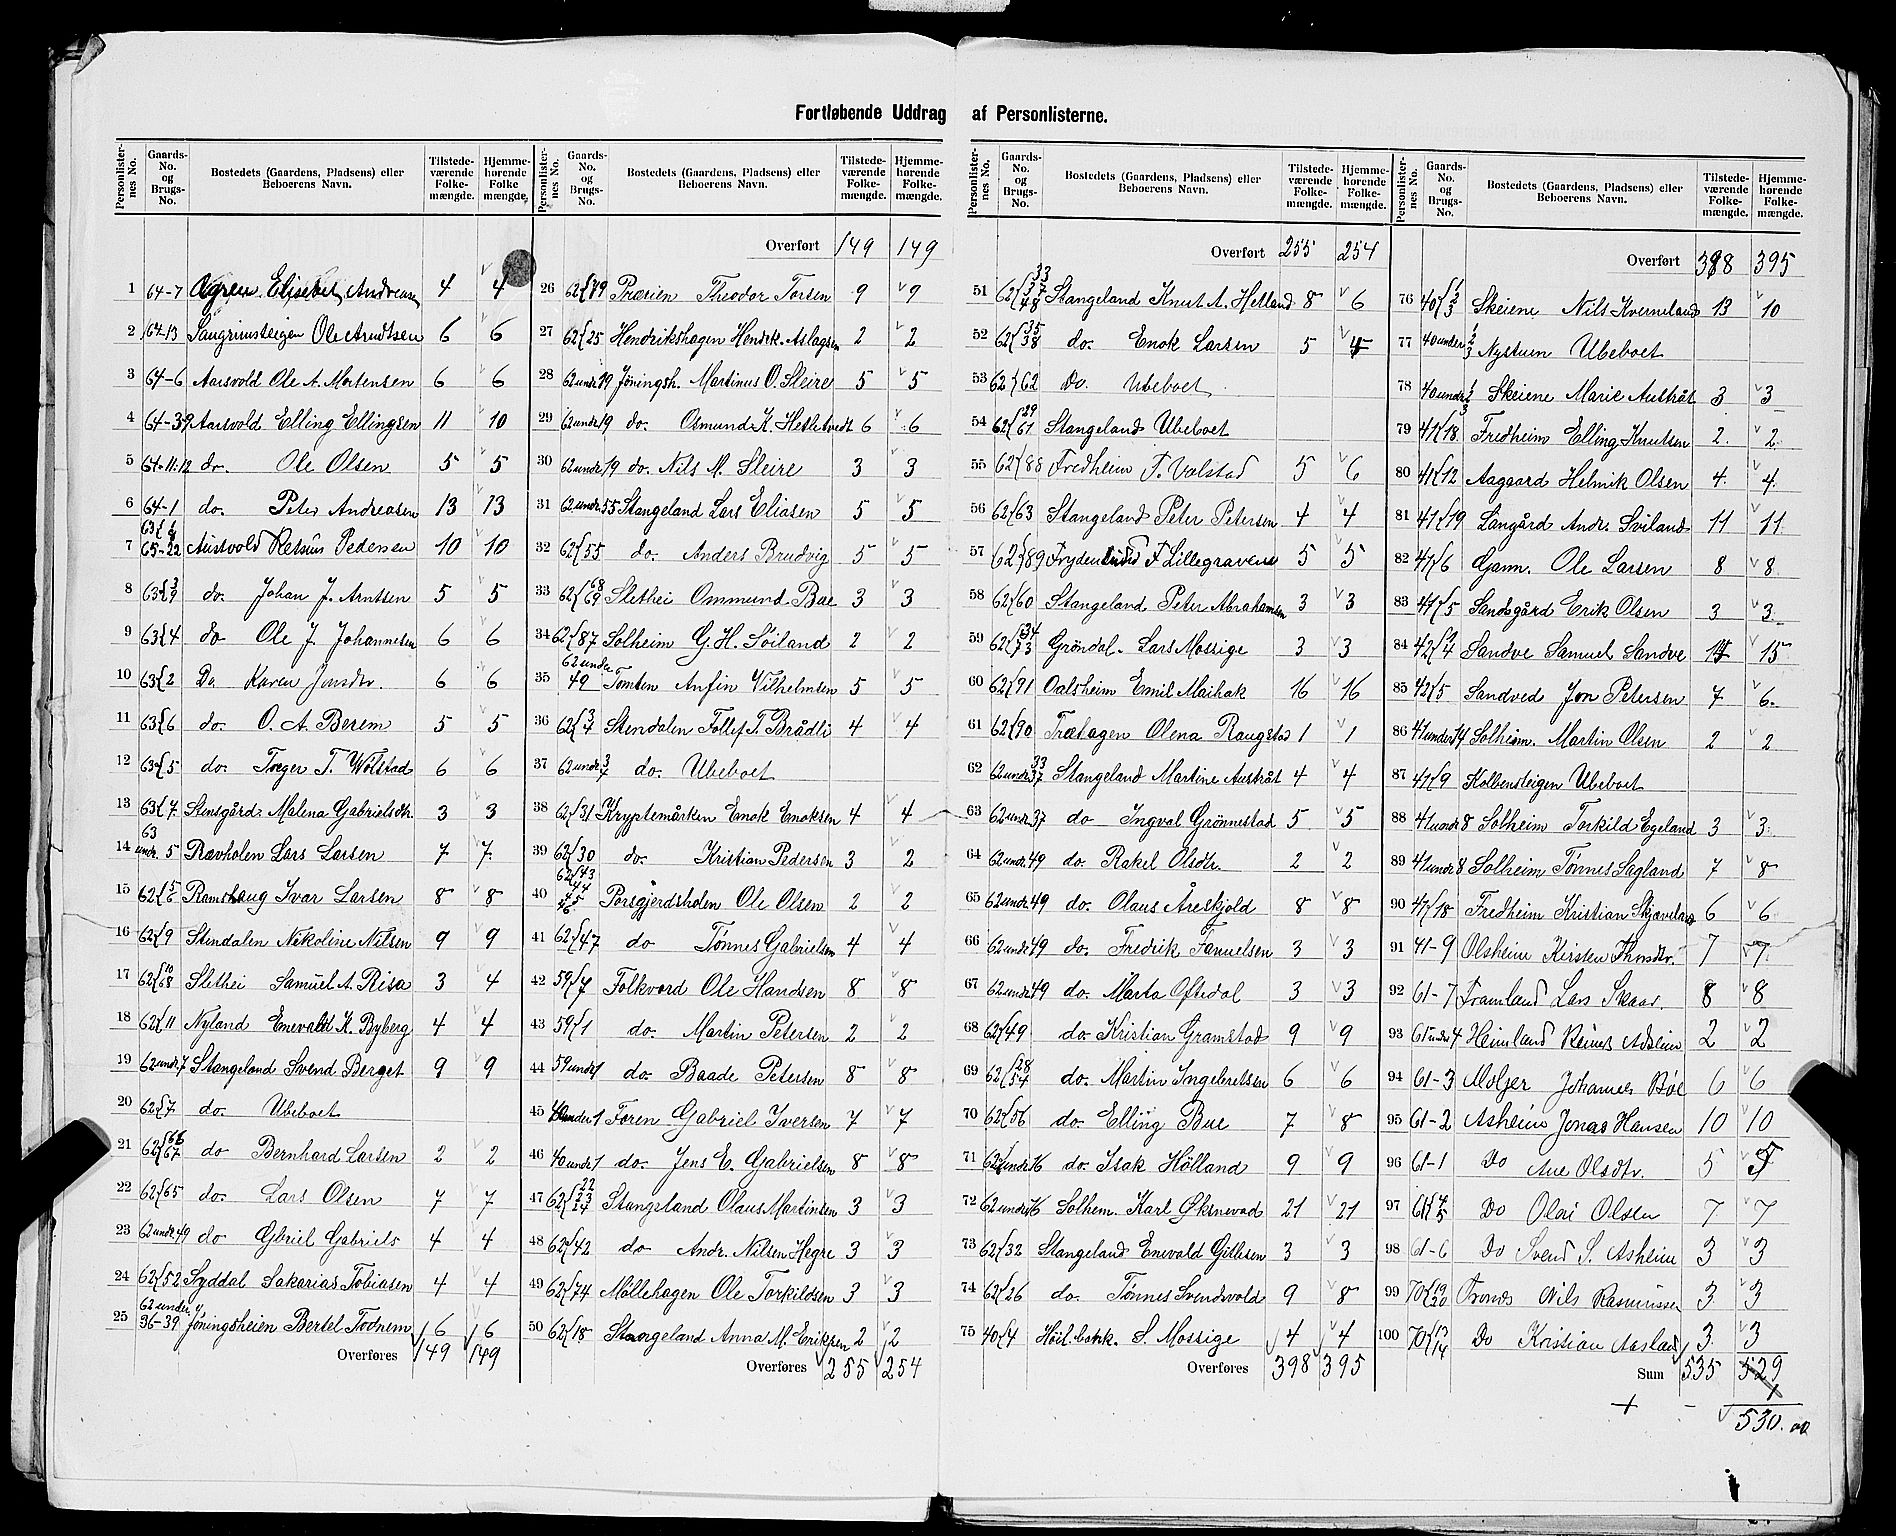 Fortløbende Uddrag af Personlisterne.
Personlister-nes No. | Gaards-No. og Brugs-No. | Bostedets (Gaardens, Pladsens) eller Beboerens Navn. | Tilstede-værende Folke-mængde. | Hjemme-hørende Folke mængde.
1 64-7 Elisebet Andreasen 4 4
2 64-13 Ole Arndtsen 6 6
3 64-6 Aarsvold Ole A. Mortensen 6 6
4 64-39 Aarsvold Elling Ellingsen 11 10
5 64-11.12 do. Ole Olsen 5 5
6 64-1 do. Peter Andreasen 13 13
7 65-22 Austvold Pedersen 10 10
8 63{3/9 do. Johan J. Arntsen 5 5
9 63{4 do Ole J. Johannesen 6 6
10 63{2 Do Karen Jonsdtr. 6 6
11 63{6 do. O. A. Berem 5 5
12 63{5 do. Tæger T. Wølstad 6 6
13 63{7 Stensgård. Malena Gabrielsdtr. 3 3
14 63 undr. 5 Ravholen Lars Larsen 7 7
15 62{5/6 Ramshaug Ivar Larsen 8 8
16 62{9 Stendalen Nikoline Nilsen 9 9
17 62{10/68 Slethei Samuel A. Risa 3 4
18 62{11 Nyland Enevald K. Byberg 4 4
19 62 undr. 7 Stangeland Svend Berget 9 9
20 62{7 do. Ubeboet
21 62{66/67 do Bernhard Larsen 2 2
22 62{65 do. Lars Olsen 7 7
23 62 undr. 49 do Gbriel Gabriels 4 4
24 62{52 Syddal Sakarias Tobiasen 4 4
25 62 under 36-39 Jöningsheien Bertel Todnem 6 6
Overføres 149 149
Personlister-nes No. | Gaards-No. og Brugs-No. | Bostedets (Gaardens, Pladsens) eller Beboerens Navn. | Tilstede-værende Folke-mængde. | Hjemme-hørende Folke-mængde.
Overført 149 149
26 62{19 Theodor Torsen 9 9
27 62{25 Hendrikshagen Henrik. Aslagsen 2 2
28 62 undr 19 Jöningsh. Martinus O. Sleire 5 5
29 62 undr 19 do. Osmund K. Hetletvedt 6 6
30 62 undr 19 do. Nils M. Sleire 3 3
31 62 undr. 55 Stangeland Lars Eliasen 5 5
32 62{55 do. Anders Brudvig 5 5
33 62{68/69 Slethei Ommund Bae 3 3
34 62{87 Solheim G. H. Söiland 2 2
35 62 under 49 Tomten Anfin Vilhelmsen 5 5
36 62{3/4 Stendalen Tollef T. Brådli 4 4
37 62 undr. 3/4 do. Ubeboet
38 62{31 Kryptemårken Enok Enoksen 4 4
39 62{30 do. Kristian Pedersen 3 2
40 62{43 44 45 46 Porsgjerdsholen Ole Olsen 2 2
41 62{47 do Tönnes Gabrielsen 4 4
42 59{7 Folkvord Ole Handsen 8 8
43 59{1 do. Martin Petersen 2 2
44 59 undr 1 do. Baade Petersen 8 8
45 40 under 1 Foren Gabriel Iversen 7 7
46 40 undr 1 do. Jens E. Gabrielsen 8 8
47 62{22 23 24 Stangeland Olaus Martinsen 3 3
48 62{42 do Andr. Nilsen Hegre 3 3
49 62{74 Möllehagen Ole Torkildsen 3 3
50 62{18 Stangeland Anna M. Eriksen 2 2
Overføres 255 254
Personlister-nes No. | Gaards-No. og Brugs-No. | Bostedets (Gaardens, Pladsens) eller Beboerens Navn. | Tilstede-værende Folke-mængde. | Hjemme-hørende Folke-mængde.
Overført 255 254
51 62{33 37 48 Stangeland Knut A. Hetland 8 6
52 62{35/38 do. Enok Larsen 5 4
53 62{62 Do. Ubeboet.
54 62{29/61 Stangeland Ubeboet
55 62{88 Fredheim T. Valstad 5 6
56 62{63 Stangeland Peter Petersen 4 4
57 62{89 Frydenlund F Lillegravene 5 5
58 62{60 Stangeland Peter Abrahamsen 3 3
59 62{34/73 Gröndal. Lars Mossige 3 3
60 62{91 Oalsheim Emil Maihak 16 16
61 62{90 Træhagen Olena Raugstad 1 1
62 62 undr. 33/37 Stangeland Martine Austråt 4 4
63 62 undr. 37 do Ingval Grönnestad 5 5
64 62 undr. 49 do. Rakel Olsdtr. 2 2
65 62 undr. 49 do. Olaus Åreskjold 8 8
66 62 undr 49 do. Fredrik Samuelsen 3 3
67 62 undr 49 do. Marta Oftedal 3 3
68 62{49 do. Kristian Gramstad 9 9
69 62{28/54 do. Martin Ingebretsen 6 6
70 62{56 do. Elling Bue 7 8
71 62 undr. 76 do. Isak Hölland 9 9
72 62 undr 76 Solhem. Karl Øksnevad 21 21
73 62{32 Stangeland Enevald Gillesen 3 3
74 62{26 do. Tönnes Svendsvold 9 8
75 40{4 S. Mossige 4 4
Overføres 398 395
Personlister-nes No. | Gaards-No. og Brugs-No. | Bostedets (Gaardens, Pladsens) eller Beboerens Navn. | Tilstede-værende Folke-mængde. | Hjemme-hørende Folke-mængde.
Overført 398 395
76 40{1 2 3 Skeiene Nils Kverneland 13 10
77 40 under 1 2 3 Nystum Ubeboet
78 40 undr. 1 2 3 Skeiene Marie Austråt 3 3
79 41{18 Fredheim Elling Knutsen 2 2
80 41{12 Aagaard Helmik Olsen 4 4
81 41{19 Langård Andr. Sviland 11 11
82 41{6 Gann. Ole Larsen 8 8
83 41{5 Sandsgård Erik Olsen 3 3
84 42{1/4 Sandve Samuel Sandve 15
85 42{5 Sandved Jon Petersen 7 6
86 41 under 14 Solheim. Martin Olsen 2 2
87 41{9 Kolbensteigen Ubeboet
88 41 undr 8 Solheim Torkild Egeland 3 3
89 41 undr 8 Solheim Tönnes Sagland 7 8
90 47{18 Fredheim Kristian 6 6
91 41-9 Olsheim Kirsten 7 7
92 61-7 Framland Lars Skaar. 8 8
93 61 undr 4 Heimland Reines Asheim 2 2
94 61-3 Moljer Johannes Böe 6 6
95 61-2 Asheim Jonas Hansen 10 10
96 61-1 Do Ane Olsdtr. 5 5
97 61{4/5 Do Olai Olsen 7 7
98 61-6 Do Svend S. Asheim 3 3
99 70{19/20 Nils Rasmussen 3 3
100 70{13/14 Do Kristian Aasland 3 3
Sum 535 529
1
530.